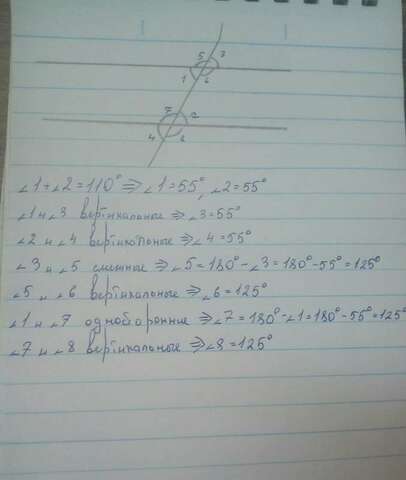 5 3
1 6
7 2
4
∠1+∠2=110° ⇒ ∠1=55°, ∠2=55°
∠1 и ∠3 вертикальные ⇒ ∠3=55°
∠2 и ∠4 вертикальные ⇒ ∠4=55°
∠3 и ∠5 смежные ⇒ ∠5=180°-∠3=180°-55°=125°
∠5 и ∠6 вертикальные ⇒ ∠6=125°
∠1 и ∠7 односторонние ⇒ ∠7=180°-∠1=180°-55°=125°
∠7 и ∠8 вертикальные ⇒ ∠8=125°